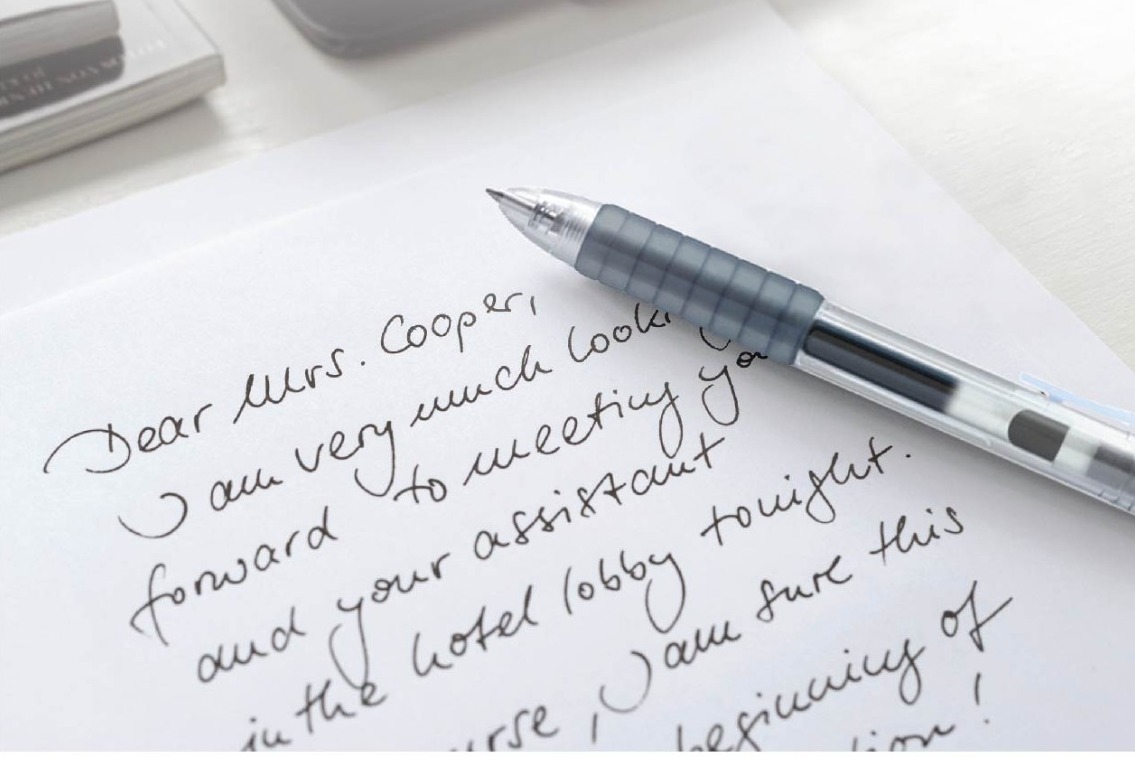 Dear Mrs. Cooper,
I am very much
forward to meeting
and your assistant
in the hotel lobby tonight.
, I am sure this
beginning of
!